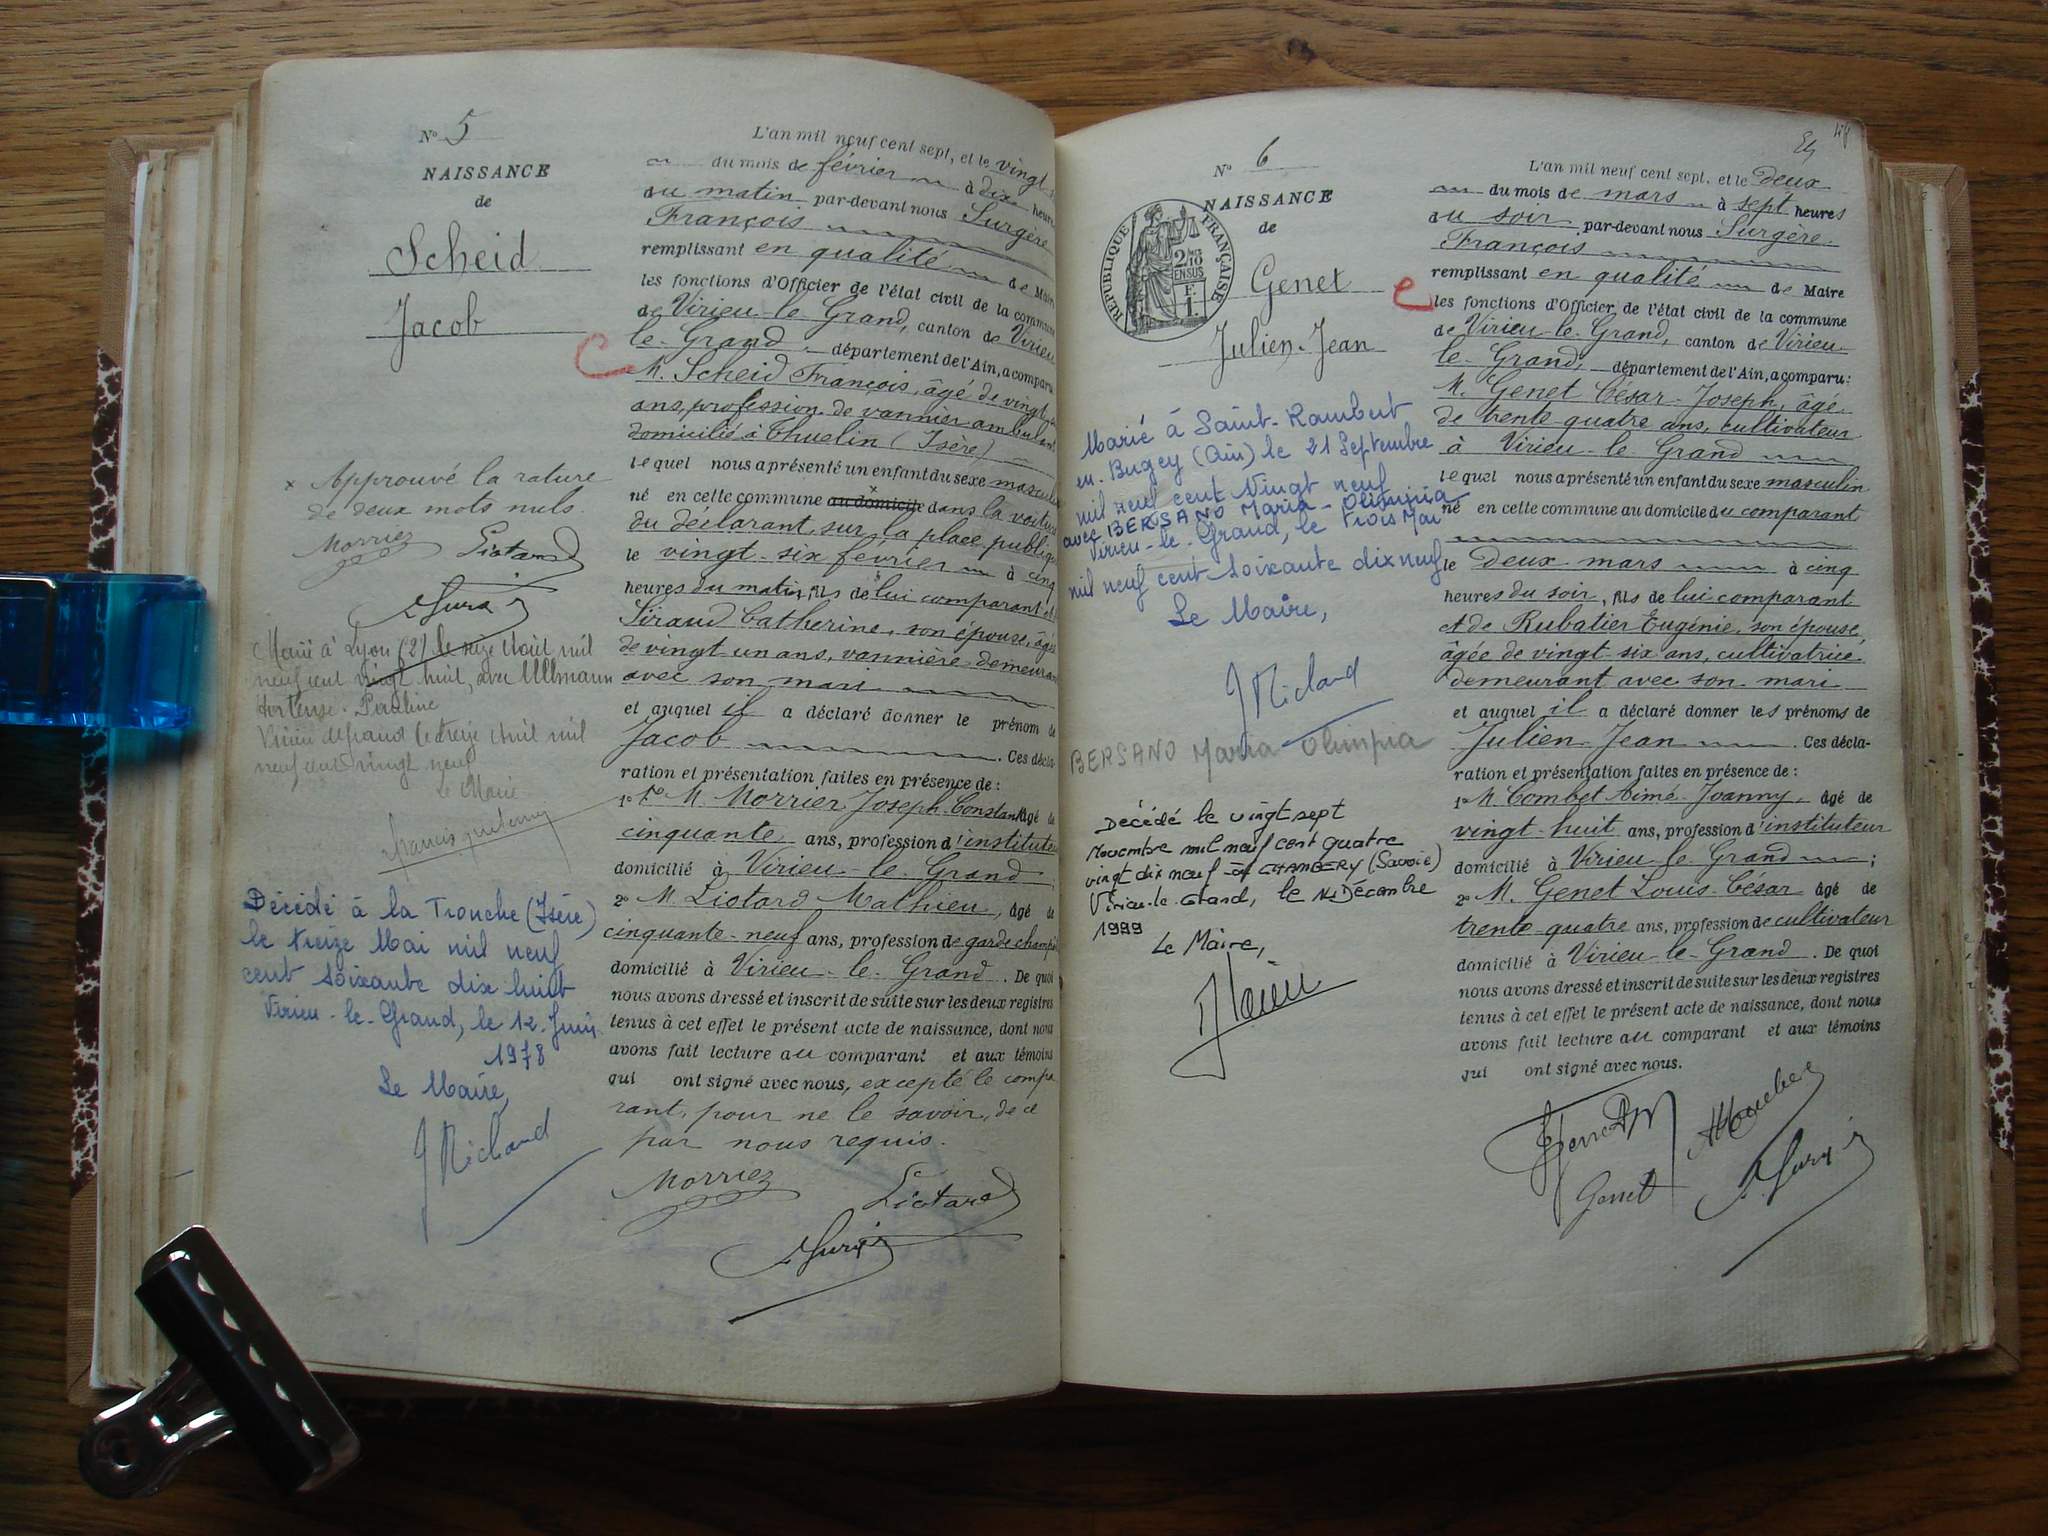 N° 5
NAISSANCE
de
Scheid
Jacob
× Approuvé la rature
de deux mots nuls.
Morrier Liotard
Marié à Lyon (2) le seize Août mil
neuf cent vingt huit, avec Ullmann
Hortense Pauline
Virieu le grand le treize Avril mil
neuf cent vingt neuf
le Maire
Décédé à la Tronche (Isère)
le treize Mai mil neuf
cent soixante dix huit
Virieu-le-Grand, le 12 Juin
1978
Le Maire,
J Richand
L'an mil neuf cent sept, et le vingt
du mois de février à dix heures
du matin par-devant nous Surgère
François
remplissant en qualité de Maire
les fonctions d'Officier de l'état civil de la commune
de Virieu-le-Grand, canton de Virieu
le-Grand, département de l'Ain, a comparu
M. Scheid François, âgé de vingt
ans, profession de vannier ambulant
domicilié à Thuelin (Isère)
lequel nous a présenté un enfant du sexe masculin
né en cette commune au domicile dans la voiture
du déclarant, sur la place publique
le vingt-six février à cinq
heures du matin, fils de lui comparant et
Siraud Catherine, son épouse, âgée
de vingt un ans, vannière demeurant
avec son mari
et auquel il a déclaré donner le prénom de
Jacob . Ces décla-
ration et présentation faites en présence de :
1° M. Morrier Joseph Constant âgé de
cinquante ans, profession d'instituteur
domicilié à Virieu-le-Grand
2° M. Liotard Mathieu, âgé de
cinquante-neuf ans, profession de garde champê
domicilié à Virieu-le-Grand. De quoi
nous avons dressé et inscrit de suite sur les deux registres
tenus à cet effet le présent acte de naissance, dont nous
avons fait lecture au comparant et aux témoins
qui ont signé avec nous, excepté le compa
rant, pour ne le savoir, de ce
par nous requis.
Morrier Liotard
N° 6
NAISSANCE
de
Genet
Julien-Jean
RÉPUBLIQUE FRANÇAISE
Marié à Saint-Rambert
en Bugey (Ain) le 21 Septembre
mil neuf cent vingt neuf
avec BERSANO Maria-Olimpia
Virieu-le-Grand, le trois Mai
mil neuf cent soixante dix neuf
Le Maire,
J Richand
BERSANO Maria Olimpia
Décédé le vingt sept
Novembre mil neuf cent quatre
vingt dix neuf à CHAMBERY (Savoie)
Virieu-le-Grand, le Décembre
1999
Le Maire,
L'an mil neuf cent sept, et le deux
du mois de mars à sept heures
du soir par-devant nous Surgère
François
remplissant en qualité de Maire
les fonctions d'Officier de l'état civil de la commune
de Virieu-le-Grand, canton de Virieu
le-Grand, département de l'Ain, a comparu :
M. Genet César-Joseph, âgé
de trente-quatre ans, cultivateur
à Virieu-le-Grand
lequel nous a présenté un enfant du sexe masculin
né en cette commune au domicile du comparant
le deux mars à cinq
heures du soir, fils de lui comparant
et de Rubatier Eugénie, son épouse,
âgée de vingt-six ans, cultivatrice
demeurant avec son mari
et auquel il a déclaré donner les prénoms de
Julien-Jean . Ces décla-
ration et présentation faites en présence de :
1° M. Combet Aimé-Joanny, âgé de
vingt-huit ans, profession d'instituteur
domicilié à Virieu-le-Grand ;
2° M. Genet Louis-César âgé de
trente-quatre ans, profession de cultivateur
domicilié à Virieu-le-Grand. De quoi
nous avons dressé et inscrit de suite sur les deux registres
tenus à cet effet le présent acte de naissance, dont nous
avons fait lecture au comparant et aux témoins
qui ont signé avec nous.
Genet